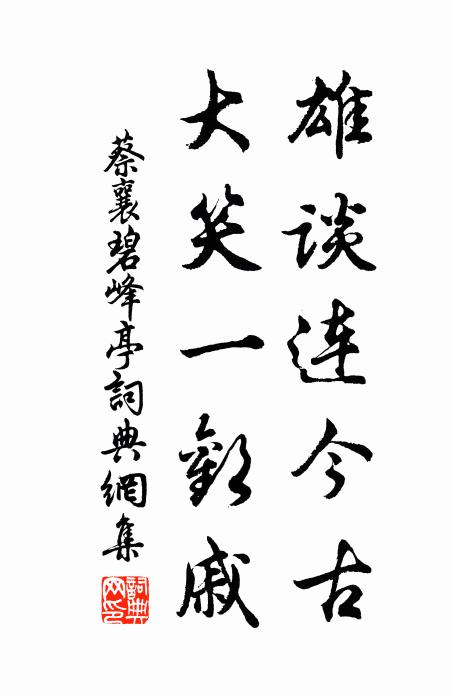 雄談連今古
大笑一歡戚
蔡襄碧峰亭詞典網集
詞典網印